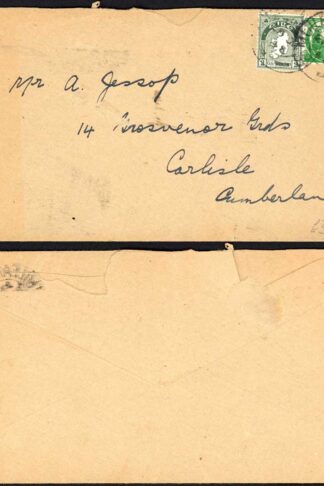 Mr A. Jessop
14 Grosvenor Grds
Carlisle
Cumberlan